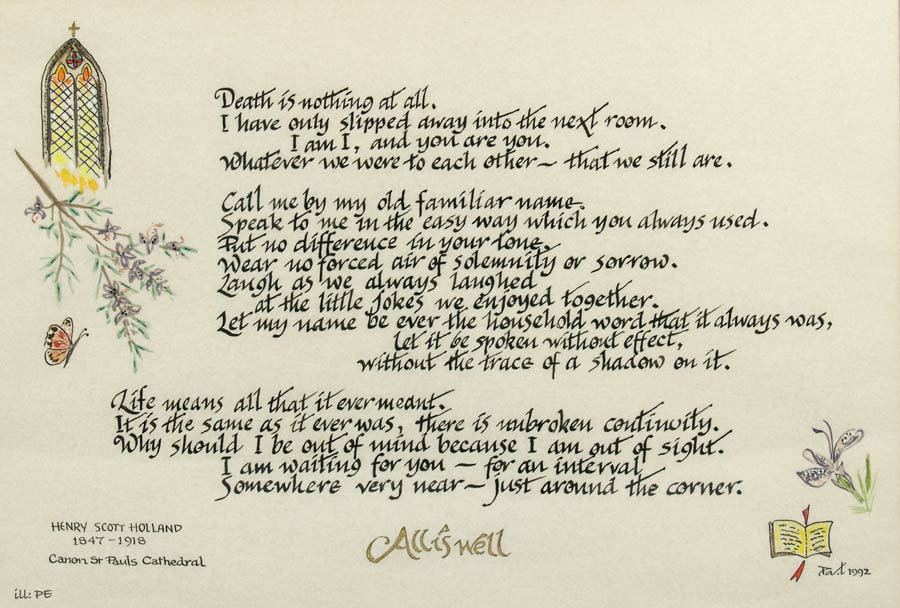 Death is nothing at all.
I have only slipped away into the next room.
I am I, and you are you.
Whatever we were to each other — that we still are.
Call me by my old familiar name.
Speak to me in the easy way which you always used.
Put no difference in your tone.
Wear no forced air of solemnity or sorrow.
Laugh as we always laughed
at the little jokes we enjoyed together.
Let my name be ever the household word that it always was,
let it be spoken without effect,
without the trace of a shadow on it.
Life means all that it ever meant.
It is the same as it ever was, there is unbroken continuity.
Why should I be out of mind because I am out of sight.
I am waiting for you — for an interval
Somewhere very near — just around the corner.
All is well
HENRY SCOTT HOLLAND
1847 – 1918
Canon St Pauls Cathedral
1992
ill: PE